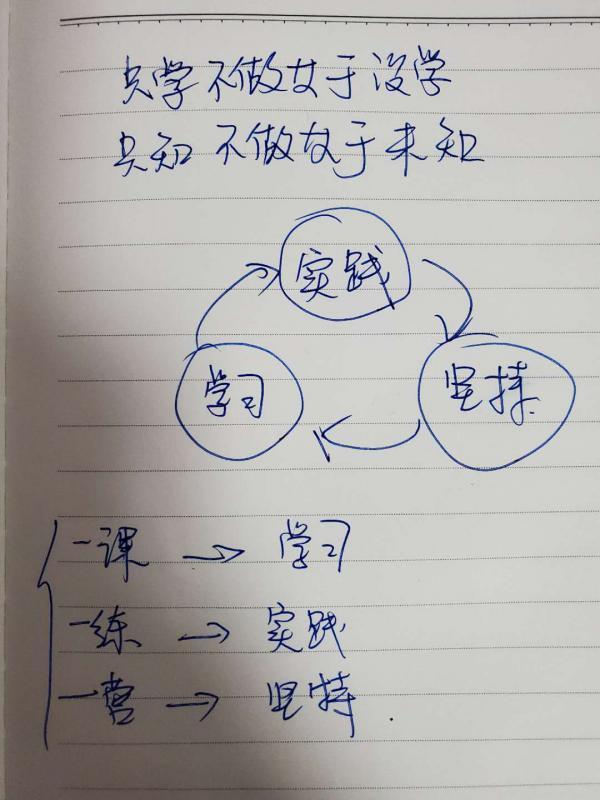 只学不做女于没学
只知不做女于未知
实践
学习
坚持
一课 → 学习
一练 → 实践
一营 → 坚持.